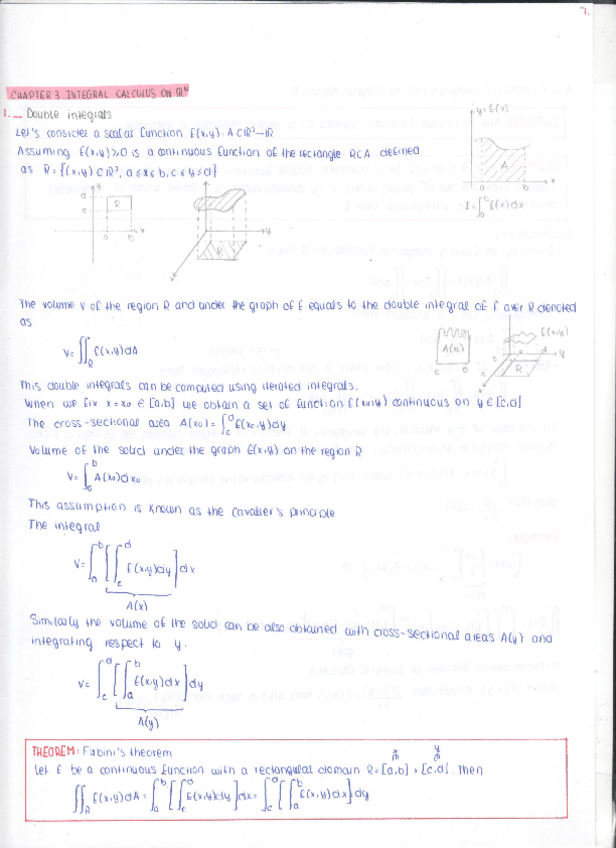 7.
CHAPTER 3. INTEGRAL CALCULUS ON ℝᴺ
1._ Double integrals
Let's consider a scalar function f(x,y): A⊂ℝ²→ℝ
Assuming f(x,y)≥0 is a continuous function of the rectangle R⊂A defined
as R={(x,y)⊂ℝ², a≤x≤b, c≤y≤d}
y=f(x)
A
a b x
I=∫ₐᵇ f(x)dx
y
d
c
R
a b x
y
R
x
The volume V of the region R and under the graph of f equals to the double integral of f over R denoted
as
V=∬_R f(x,y)dA
A(x₀)
c d
f(x,y)
R
y
x
This double integrals can be computed using iterated integrals.
When we fix x=x₀ ∈[a,b] we obtain a set of function f(x₀,y) continuous on y∈[c,d]
The cross-sectional area A(x₀)=∫_c^d f(x₀,y)dy
Volume of the solid under the graph f(x,y) on the region R
V=∫ₐᵇ A(x₀)dx₀
This assumption is known as the Cavalier's principle
The integral
V=∫ₐᵇ[∫_c^d f(x,y)dy]dx
A(x)
Similarly the volume of the solid can be also obtained with cross-sectional areas A(y) and
integrating respect to y.
V=∫_c^d[∫ₐᵇ f(x,y)dx]dy
A(y)
THEOREM: Fubini's theorem
Let f be a continuous function with a rectangular domain R=[a,b]×[c,d]. Then
∬_R f(x,y)dA=∫ₐᵇ[∫_c^d f(x,y)dy]dx=∫_c^d[∫ₐᵇ f(x,y)dx]dy